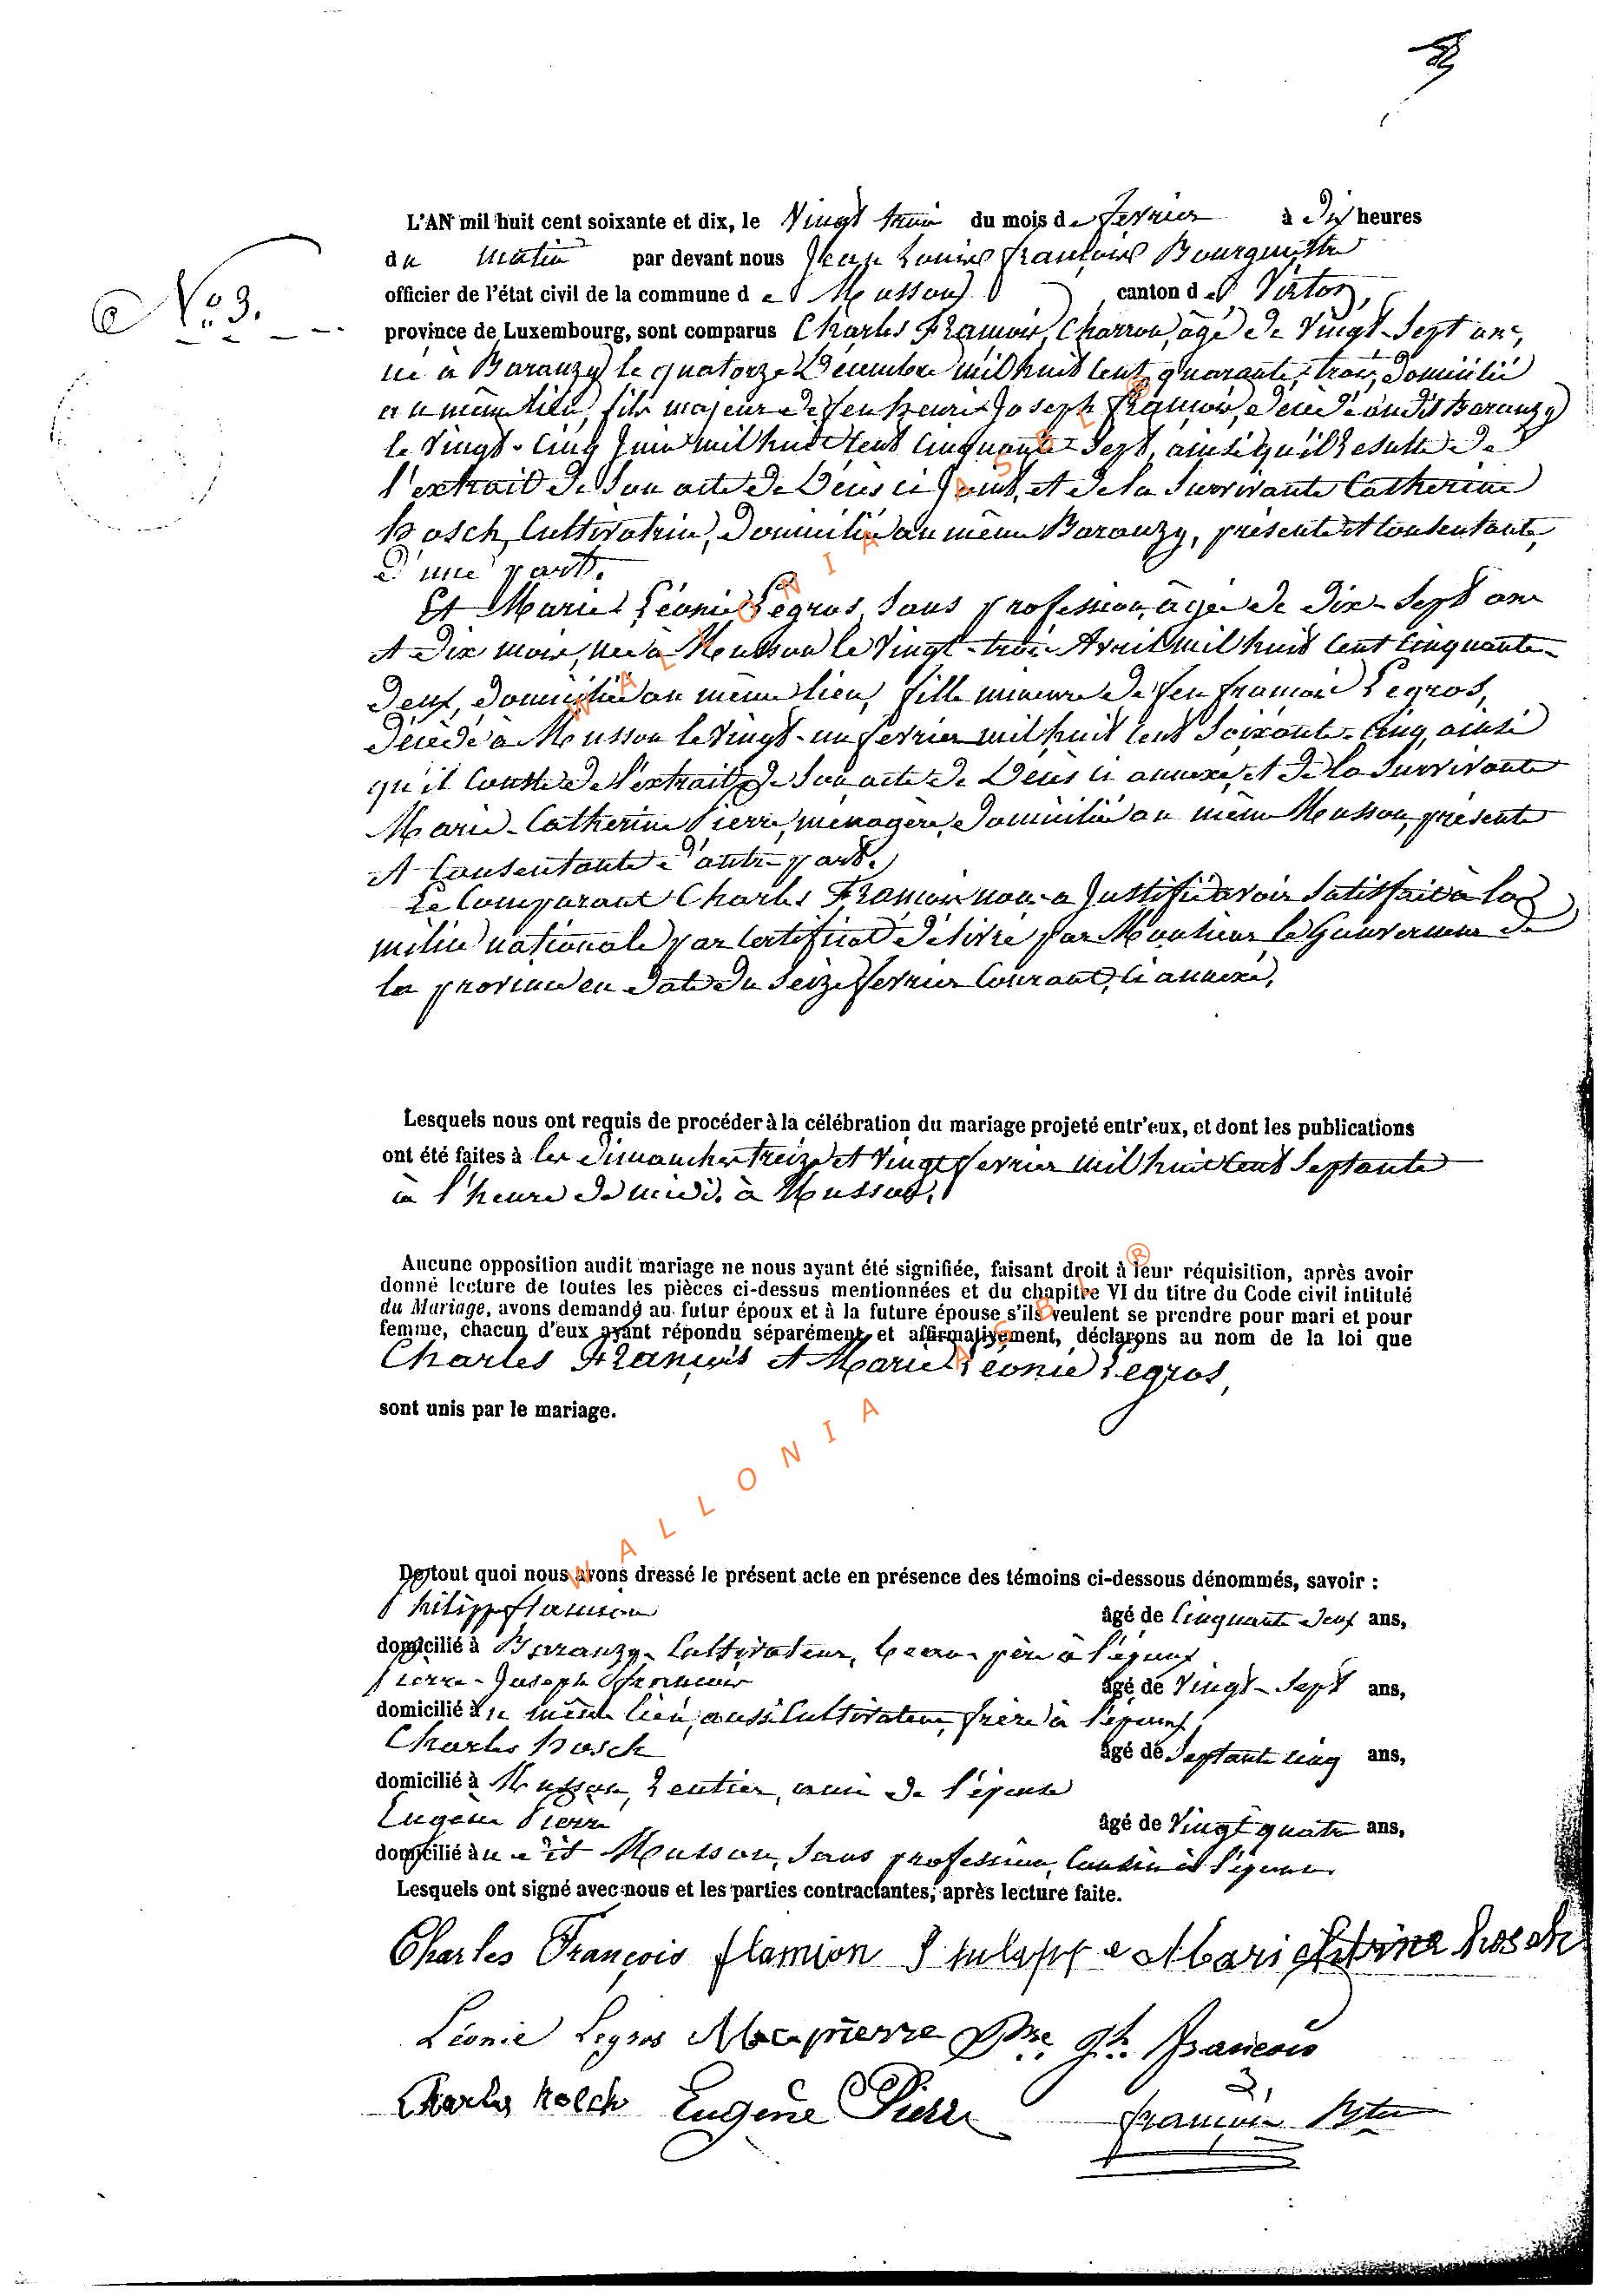 N° 3.
L'AN mil huit cent soixante et dix, le Vingt trois du mois de février à Dix heures
du matin par devant nous Jean Louis François Bourgmestre
officier de l'état civil de la commune de Musson canton de Virton,
province de Luxembourg, sont comparus Charles François, Charron, âgé de Vingt-Sept ans,
né à Baranzy le quatorze Décembre mil huit Cent quarante-trois, Domicilié
au même lieu, fils majeur de feu henri Joseph François, décédé audit Baranzy
le Vingt-Cinq Juin mil huit Cent Cinquante-Sept, ainsi qu'il Résulte de
l'extrait de Son acte de Décès ci Joint, et de la Survivante Catherine
hosch, Cultivatrice, Domiciliée au même Baranzy, présente et Consentante,
D'une part.
Et Marie Léonie Legros, Sans profession, âgée de Dix-Sept ans
et Dix mois, née à Musson le Vingt-trois Avril mil huit Cent Cinquante-
Deux, Domiciliée au même lieu, fille mineure de feu françois Legros,
Décédé à Musson le Vingt-un février mil huit Cent Soixante-Cinq, ainsi
qu'il Conste de l'extrait de Son acte de Décès ci annexé, et de la Survivante
Marie-Catherine Pierre, ménagère, Domiciliée au même Musson, présente
et Consentante d'autre part.
Le Comparant Charles François nous a Justifié avoir Satisfait à la
milice nationale par Certificat Délivré par Monsieur le Gouverneur de
la province en date du Seize février Courant, ci annexé.
Lesquels nous ont requis de procéder à la célébration du mariage projeté entr'eux, et dont les publications
ont été faites à les Dimanches treize et Vingt février mil huit Cent Septante
à l'heure de midi. à Musson.
Aucune opposition audit mariage ne nous ayant été signifiée, faisant droit à leur réquisition, après avoir
donné lecture de toutes les pièces ci-dessus mentionnées et du chapitre VI du titre du Code civil intitulé
du Mariage, avons demandé au futur époux et à la future épouse s'ils veulent se prendre pour mari et pour
femme, chacun d'eux ayant répondu séparément et affirmativement, déclarons au nom de la loi que
Charles François et Marie Léonie Legros,
sont unis par le mariage.
De tout quoi nous avons dressé le présent acte en présence des témoins ci-dessous dénommés, savoir :
Philippe flamion âgé de Cinquante Deux ans,
domicilié à Baranzy, Cultivateur, beau-père à l'époux
Pierre-Joseph françois âgé de Vingt-Sept ans,
domicilié au même lieu, aussi Cultivateur, frère à l'époux,
Charles hosch âgé de Septante cinq ans,
domicilié à Musson, Rentier, ami de l'épouse
Eugène Pierre âgé de Vingt quatre ans,
domicilié audit Musson, Sans profession, Cousin à l'épouse.
Lesquels ont signé avec nous et les parties contractantes, après lecture faite.
Charles François flamion Philippe Mari hosch
Léonie Legros Mac pierre Pre Jh. francois
Charles hosch Eugène Pierre françois Bstre
WALLONIA ASBL ®
WALLONIA ASBL ®